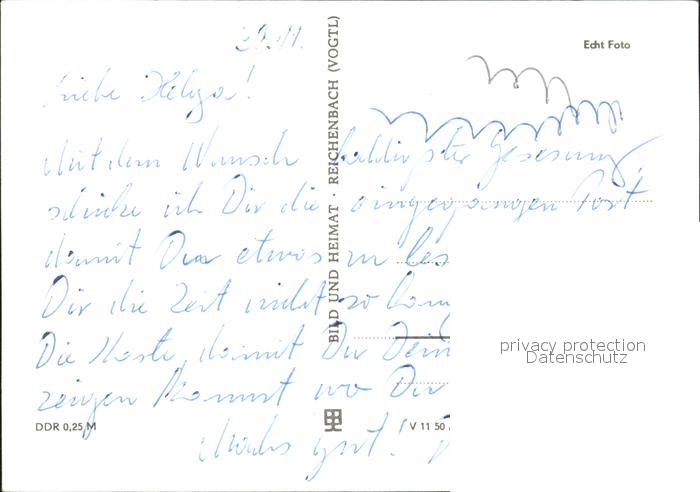 29.11.
Echt Foto
Liebe Helga!
Mit dem Wunsch baldigster Genesung
schicke ich Dir die eingegangen Post
damit Du etwas zu les
Dir die Zeit nicht so
Die Karte, damit Du Dein
zeigen kannst wo Du
Machs gut!
BILD UND HEIMAT · REICHENBACH (VOGTL)
DDR 0,25 M
V 11 50
privacy protection
Datenschutz